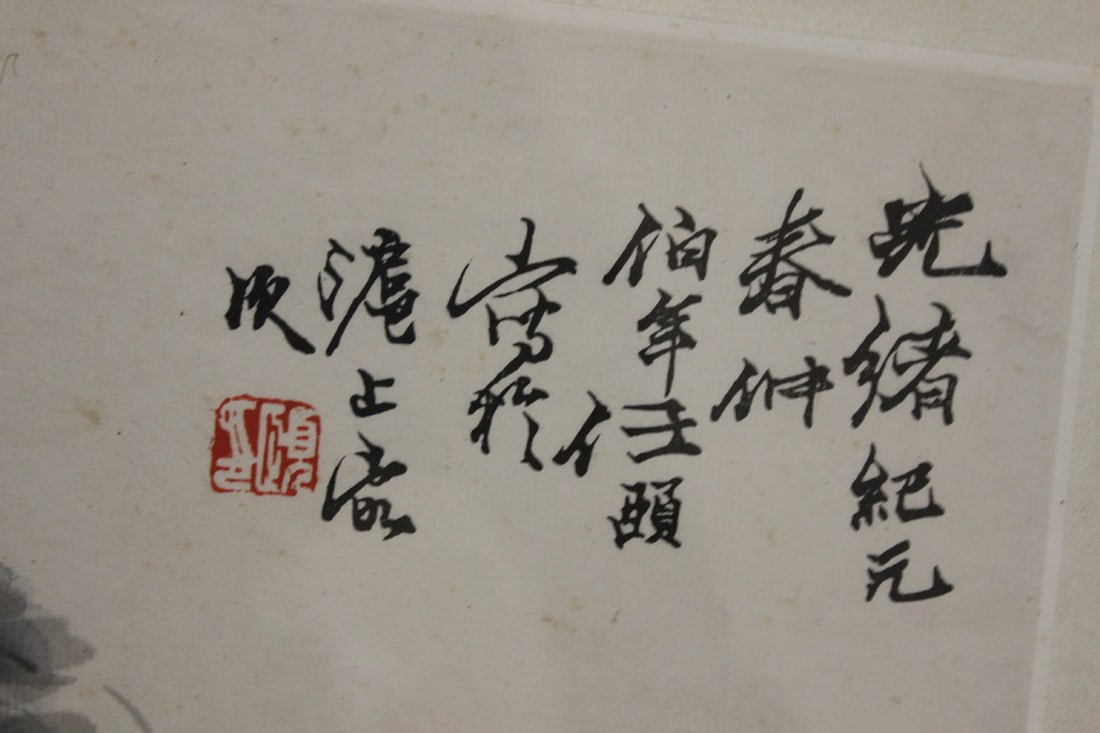 光緒紀元
春仲
伯年任頤
寫於
滬上客
次
頤印